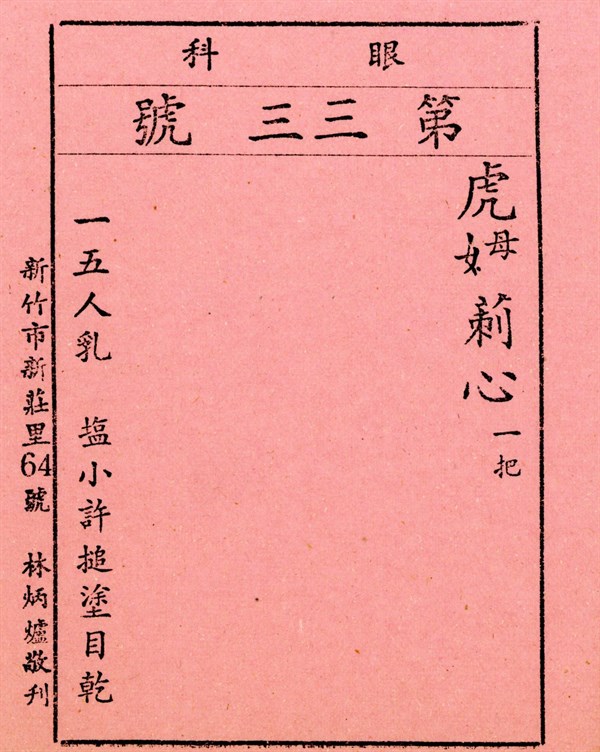 眼科
第三三號
虎姆莿心一把
一五人乳 塩小許搥塗目乾
新竹市新莊里64號 林炳爐敬刊